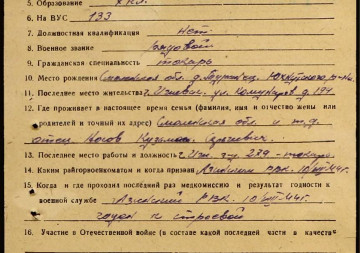 5. Образование
6. На ВУС 133
7. Должностная квалификация нет
8. Военное звание рядовой
9. Гражданская специальность токарь
10. Место рождения Смоленская обл. д.
11. Последнее место жительства г. Ижевск ул. Коммунаров д. 191
12. Где проживает в настоящее время семья (фамилия, имя и отчество жены или
родителей и точный их адрес) Смоленская обл. и т.д.
отец Носов Кузьма Сергеевич
13. Последнее место работы и должность г. Иж. 279 - токарь
14. Каким райгорвоенкоматом и когда призван Азинским РВК. 10/VIII-44 г.
15. Когда и где проходил последний раз медкомиссию и результат годности к
военной службе Азинский РВК. 10/VIII-44 г.
годен к строевой
16. Участие в Отечественной войне (в составе какой последней части в качестве